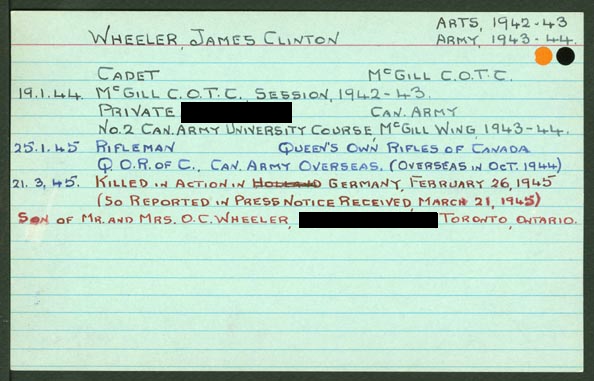 ARTS, 1942-43
WHEELER, JAMES CLINTON ARMY, 1943-44.
CADET McGILL C.O.T.C.
19.1.44. McGILL C.O.T.C., SESSION, 1942-43.
PRIVATE CAN. ARMY
No.2 CAN. ARMY UNIVERSITY COURSE, McGILL WING, 1943-44.
25.1.45 RIFLEMAN QUEEN'S OWN RIFLES OF CANADA
Q.O.R. OF C., CAN. ARMY OVERSEAS. (OVERSEAS IN OCT. 1944)
21.3.45. KILLED IN ACTION IN HOLLAND GERMANY, FEBRUARY 26, 1945
(SO REPORTED IN PRESS NOTICE RECEIVED, MARCH 21, 1945)
SON OF MR. AND MRS. O.C. WHEELER, TORONTO, ONTARIO.